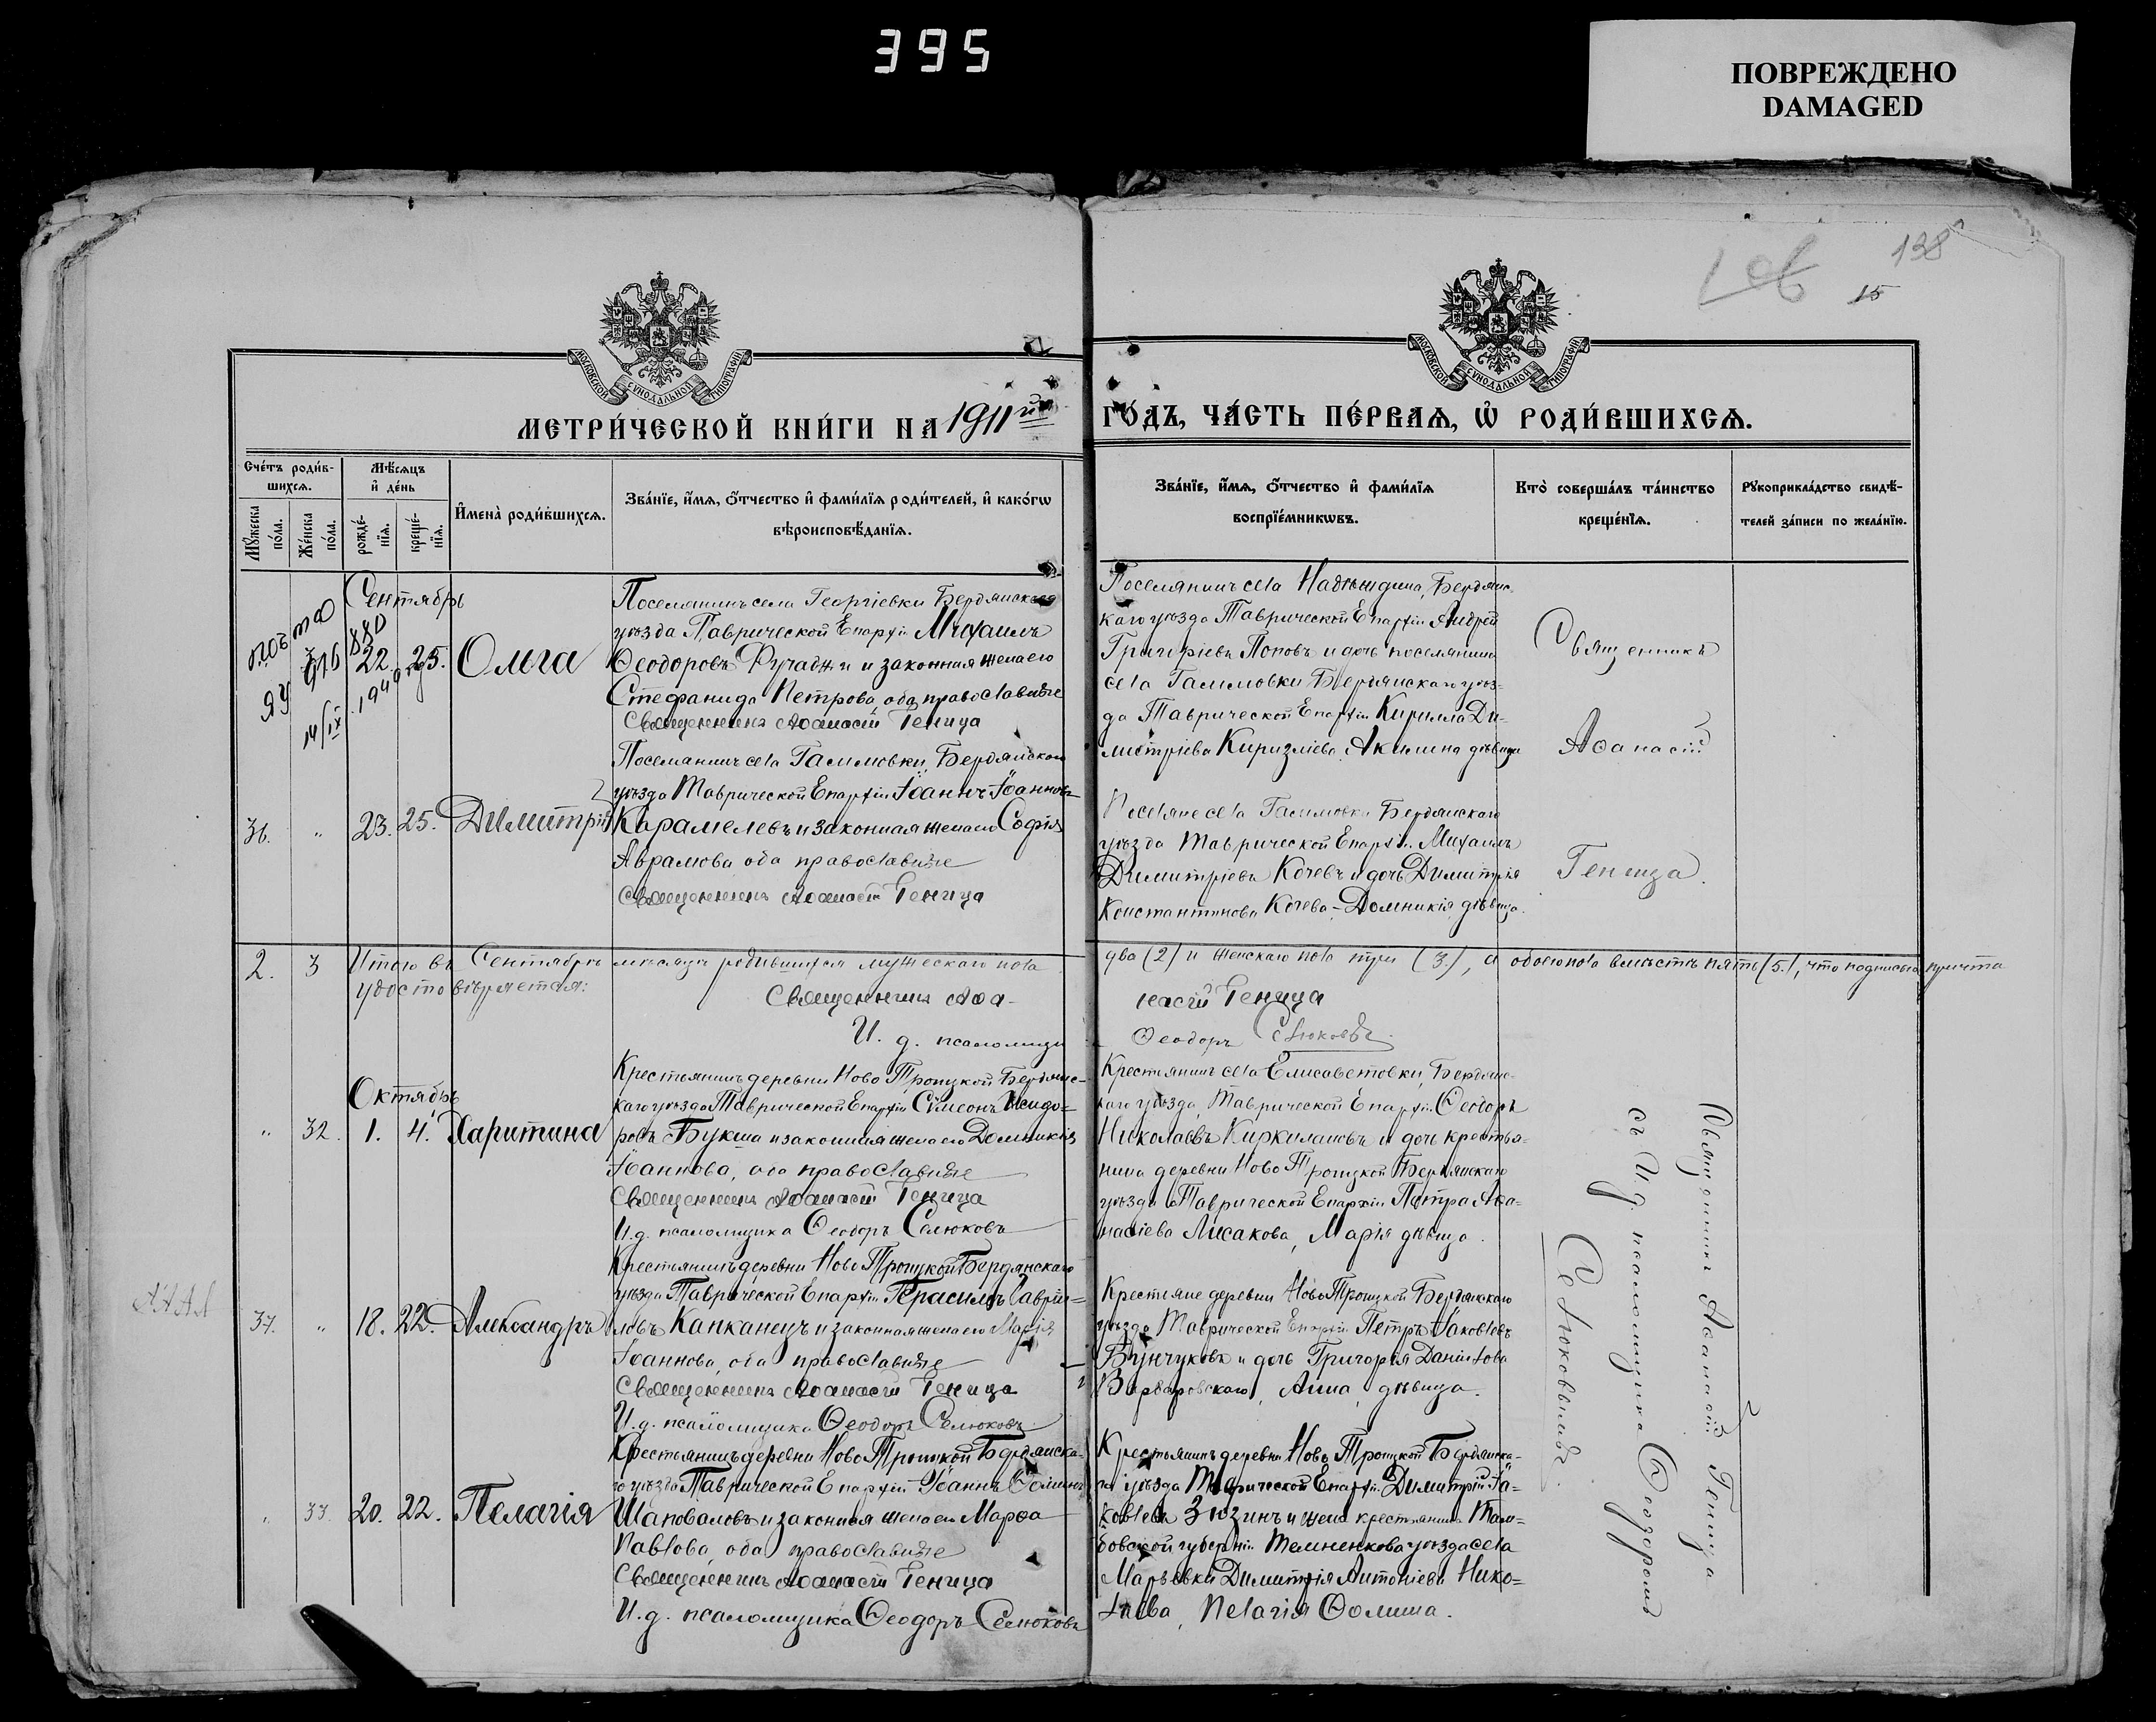 395
ПОВРЕЖДЕНО
DAMAGED
138
15
МОСКОВСКОЙ СѴНОДАЛЬНОЙ ТИПОГРАФІИ
МОСКОВСКОЙ СѴНОДАЛЬНОЙ ТИПОГРАФІИ
МЕТРИ́ЧЕСКОЙ КНИ́ГИ НА 1911й
ГО́ДЪ, ЧА́СТЬ ПЕ́РВАѦ, Ѡ҆ РОДИ́ВШИХСѦ.
Сче́тъ роди́в-
шихсѧ.
Мѣ́сѧцъ
и҆ де́нь
Мꙋ́жеска
по́ла.
Же́нска
по́ла.
рожде́-
нїѧ.
креще́-
нїѧ.
И҆мена̀ роди́вшихсѧ.
Зва́нїе, и҆́мѧ, ѻ҆́тчество и҆ фами́лїѧ роди́телей, и҆ како́гѡ
вѣроисповѣ́данїѧ.
Зва́нїе, и҆́мѧ, ѻ҆́тчество и҆ фами́лїѧ
воспрїе́мникѡвъ.
Кто̀ соверша́лъ та́инство
креще́нїѧ.
Рꙋкоприкла́дство свидѣ́-
телей за́писи по жела́нїю.
Сентябрь
22. 25. Ольга
Поселянинъ села Георгіевки Бердянскаго
уѣзда Таврической Епархіи Михаилъ
Ѳеодоровъ Фучаджи и законная жена его
Стефанида Петрова, оба православные
Священникъ Аѳанасій Геница
Поселянинъ села Надеждина, Бердянс-
каго уѣзда Таврической Епархіи Андрей
Григоріевъ Поповъ и дочь поселянина
села Гамовки Бердянскаго уѣз-
да Таврической Епархіи Кирилла Ди-
митріева Киризліева, Акилина дѣвица
Священникъ
Аѳанасій
Геница.
36. " 23. 25. Димитрій
Поселянинъ села Гамовки, Бердянскаго
уѣзда Таврической Епархіи Іоаннъ Іоанновъ
Карамелевъ и законная жена его Софія
Аврамова, оба православные
Священникъ Аѳанасій Геница
Поселяне села Гамовки Бердянскаго
уѣзда Таврической Епархіи Михаилъ
Димитріевъ Кочевъ и дочь Димитрія
Константинова Кочева - Домникія, дѣвица.
2. 3 Итого въ Сентябрѣ мѣсяцѣ родившихся мужескаго пола
два (2) и женскаго пола три (3.), а обоего пола вмѣстѣ пять (5.), что подписью причта
удостовѣряется:
Священникъ Аѳа-
насій Геница
И. д. псаломщи
Ѳеодоръ Селюковъ.
Октябрь
" 32. 1. 4. Харитина
Крестьянинъ деревни Ново Троицкой Бердянс-
каго уѣзда Таврической Епархіи Симеонъ Исидо-
ровъ Букша и законная жена его Домникія
Іоаннова, оба православные
Священникъ Аѳанасій Геница
И. д. псаломщика Ѳеодоръ Селюковъ
Крестьянинъ села Елисаветовки, Бердянс-
каго уѣзда, Таврической Епархіи Ѳеодоръ
Николаевъ Киркилановъ и дочь крестья-
нина деревни Ново Троицкой Бердянскаго
уѣзда Таврической Епархіи Петра Аѳа-
насіева Лисакова, Марія дѣвица.
Священникъ Аѳанасій Геница
съ И. д. псаломщика Ѳеодоромъ
Селюковымъ.
37. " 18. 22. Александръ
Крестьянинъ деревни Ново Троицкой Бердянскаго
уѣзда Таврической Епархіи Герасимъ Гаврии-
ловъ Капканецъ и законная жена его Марія
Іоаннова, оба православные
Священникъ Аѳанасій Геница
И. д. псаломщика Ѳеодоръ Селюковъ
Крестьяне деревни Ново Троицкой Бердянскаго
уѣзда Таврической Епархіи Петръ Іаковлевъ
Вунчуковъ и дочь Григорія Даніилова
Варваровскаго, Анна, дѣвица.
" 33. 20. 22. Пелагія
Крестьянинъ деревни Ново Троицкой Бердянска-
го уѣзда Таврической Епархіи Іоаннъ Ѳоминъ
Шаповаловъ и законная жена его Марѳа
Павлова, оба православные
Священникъ Аѳанасій Геница
И. д. псаломщика Ѳеодоръ Селюковъ
Крестьянинъ деревни Ново Троицкой Бердянска-
го уѣзда Таврической Епархіи Димитрій Іа-
ковлевъ Зюзинъ и жена крестьянина Там-
бовской губерніи Темненкова уѣзда села
Марьевки Димитрія Антоніева Нико-
лаева, Пелагія Ѳомина.